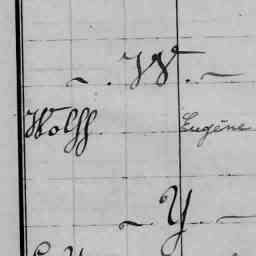 ~ . W . ~
Wolff Eugène
~ Y . ~